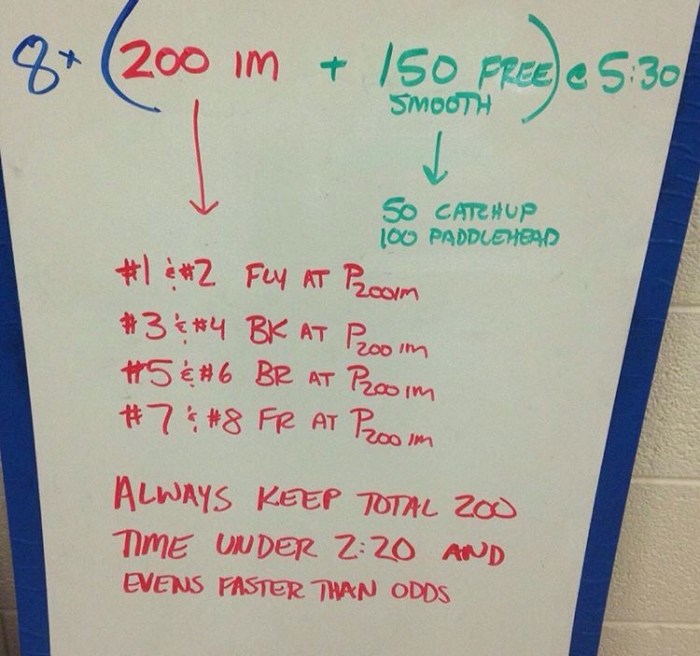 8x (200 IM + 150 FREE) @ 5:30
SMOOTH
50 CATCHUP
100 PADDLEHEAD
#1 & #2 FLY AT P200IM
#3 & #4 BK AT P200 IM
#5 & #6 BR AT P200 IM
#7 & #8 FR AT P200 IM
ALWAYS KEEP TOTAL 200
TIME UNDER 2:20 AND
EVENS FASTER THAN ODDS